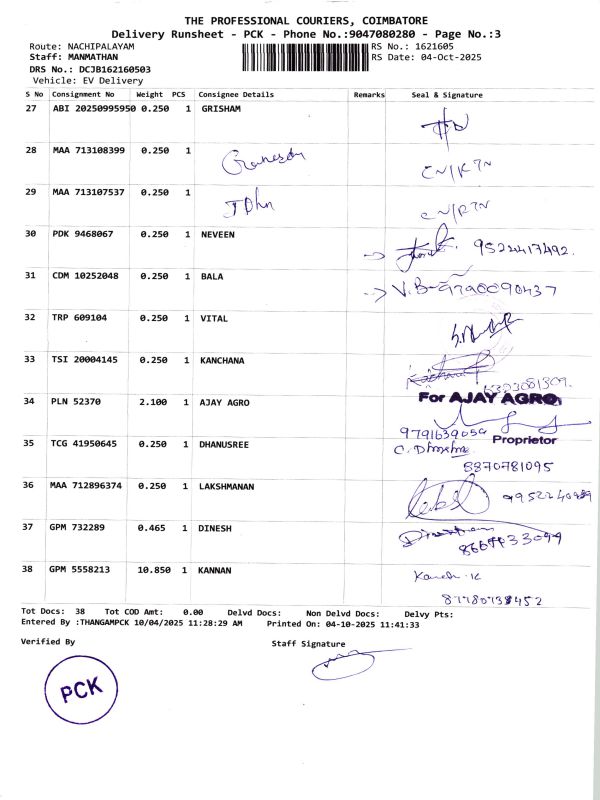 THE PROFESSIONAL COURIERS, COIMBATORE
Delivery Runsheet - PCK - Phone No.:9047080280 - Page No.:3
Route: NACHIPALAYAM RS No.: 1621605
Staff: MANMATHAN RS Date: 04-Oct-2025
DRS No.: DCJB162160503
Vehicle: EV Delivery
S No Consignment No Weight PCS Consignee Details Remarks Seal & Signature
27 ABI 20250995950 0.250 1 GRISHAM
28 MAA 713108399 0.250 1 Ganesan
CN/RTN
29 MAA 713107537 0.250 1 John
CN/RTN
30 PDK 9468067 0.250 1 NEVEEN
9522417492.
31 CDM 10252048 0.250 1 BALA
V.B-9790090437
32 TRP 609104 0.250 1 VITAL
33 TSI 20004145 0.250 1 KANCHANA
34 PLN 52370 2.100 1 AJAY AGRO For AJAY AGRO
9791639054 Proprietor
35 TCG 41950645 0.250 1 DHANUSREE C. Dhanshree
8870781095
36 MAA 712896374 0.250 1 LAKSHMANAN
37 GPM 732289 0.465 1 DINESH
38 GPM 5558213 10.850 1 KANNAN
Tot Docs: 38 Tot COD Amt: 0.00 Delvd Docs: Non Delvd Docs: Delvy Pts:
Entered By :THANGAMPCK 10/04/2025 11:28:29 AM Printed On: 04-10-2025 11:41:33
Verified By Staff Signature
PCK